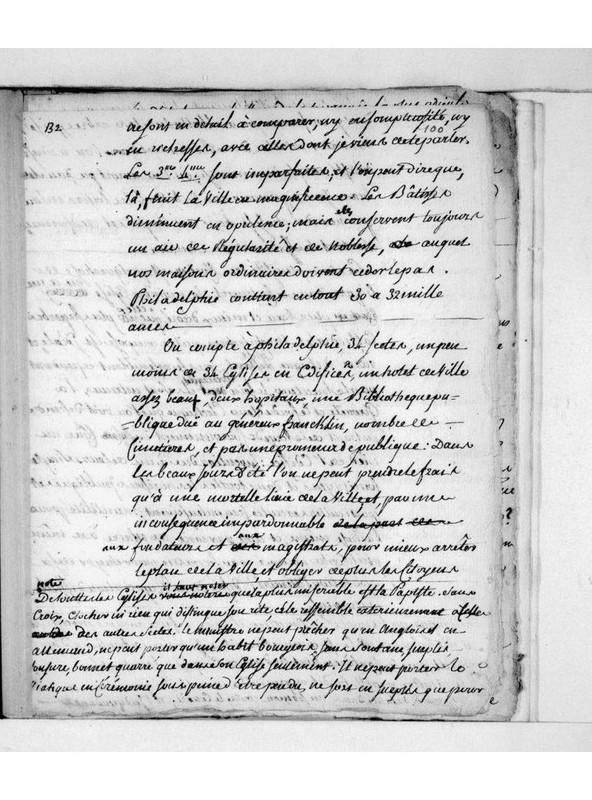 B2
100
ne sont en détail à comparer, ny en somptuosité, ny
en richesses, avec celles dont je viens de parler.
Les 3me 4me sont imparfaites, et l'on peut dire que,
là, finit la Ville en magnificence. Les Bâtisses
diminuent en opulence; mais elles conservent toujours
un air de Régularité et de Noblesse, auquel
nos maisons ordinaires doivent ceder le pas.
Philadelphie contient en tout 30 a 32 mille
ames
On compte à philadelphie, 34 sectes, un peu
moins de 34 Eglises en Edifices, un hotel de Ville
assez beau, deux hopitaux, une Bibliotheque pu-
blique due au généreux francklin, nombre de
Cimetieres, et pas une promenade publique: Dans
les beaux jours d'été l'on ne peut prendre le frais
qu'à une mortelle lieüe de la Ville, et par une
inconsequence impardonnable de la part des
aux fondateurs et aux magistrats, pour mieux arrêter
le plan de la Ville et obliger de plus les Citoyens
note
De toutes les Eglises il faut noter que la plus miserable est la Papiste. Sans
Croix, Clocher ni rien qui distingue son rite elle ressemble exterieurement à celles
des autres sectes. le ministre ne peut prêcher qu'en Anglois et en
allemand, ne peut porter qu'un habit bourgeois, sans soutane, surplis
bonnet quarré que dans son Eglise seulement. Il ne peut porter le
Viatique en Cérémonie sous peine d'etre pendu, ne sort en surplis que pour